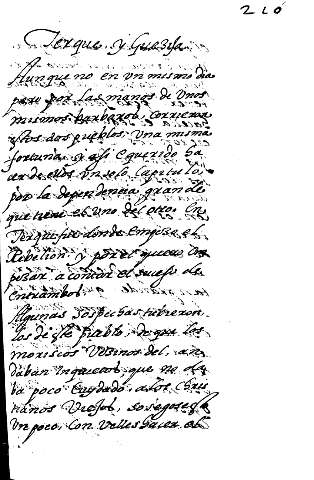 210
Terque, y Guezija
Aunque no en un mismo dia
pero por las manos de unos
mismos barbaros, corrieron
estos dos pueblos, una misma
fortuna, y assi e querido ha
zer de ellos un solo capitulo
por la dependencia grande
que tiene el uno del otro. En
Terque fue donde empezo el
Rebelion y por el quiero em
pezar, a contar el sucesso de
entrambos.
Algunas sospechas tubieron
los de este pueblo, de que los
moriscos vezinos del, an
daban inquietos, que no de
ba poco cuydado, a los Cris
tianos Viejos, sosegose
un poco, con velles hacer el